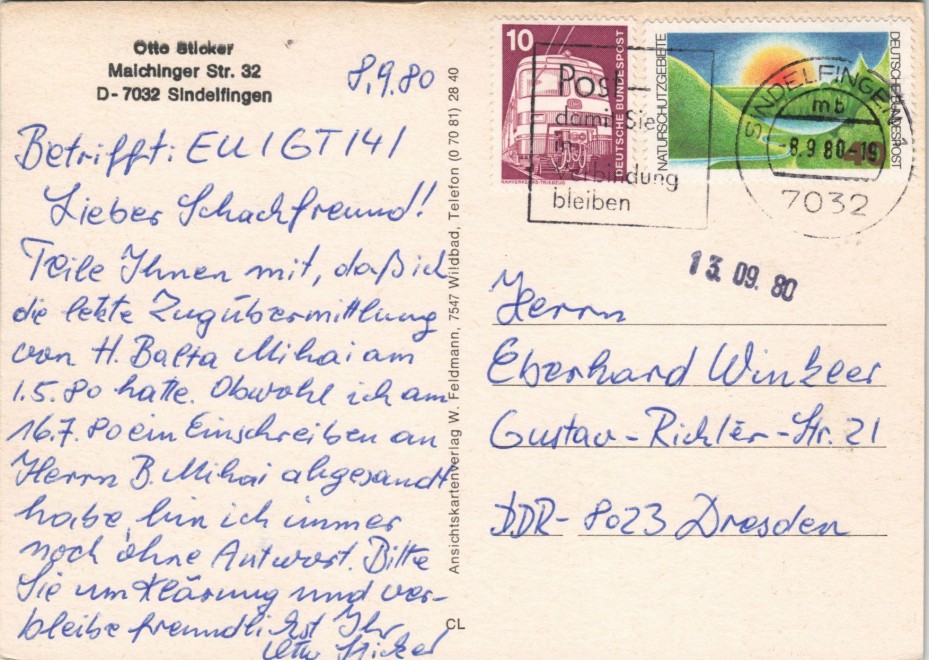 Otto Sticker
Maichinger Str. 32
D-7032 Sindelfingen
8.9.80
Betrifft: EU/GT 141
Lieber Schachfreund!
Teile Ihnen mit, daß ich
die letzte Zugübermittlung
von H. Balta Mihai am
1.5.80 hatte. Obwohl ich am
16.7.80 ein Einschreiben an
Herrn B. Mihai abgesandt
habe, bin ich immer
noch ohne Antwort. Bitte
Sie um Klärung und ver-
bleibe freundlichst Ihr
Otto Sticker
Ansichtskartenverlag W. Feldmann, 7547 Wildbad, Telefon (0 70 81) 28 40
CL
10
DEUTSCHE BUNDESPOST
NAHVERKEHRS-TRIEBZUG
NATURSCHUTZGEBIETE
DEUTSCHE BUNDESPOST
Post –
damit Sie
in
Verbindung
bleiben
SINDELFINGEN 1
mb
-8.9.80-19
7032
13.09.80
Herrn
Eberhard Winkler
Gustav-Richter-Str. 21
DDR- 8023 Dresden